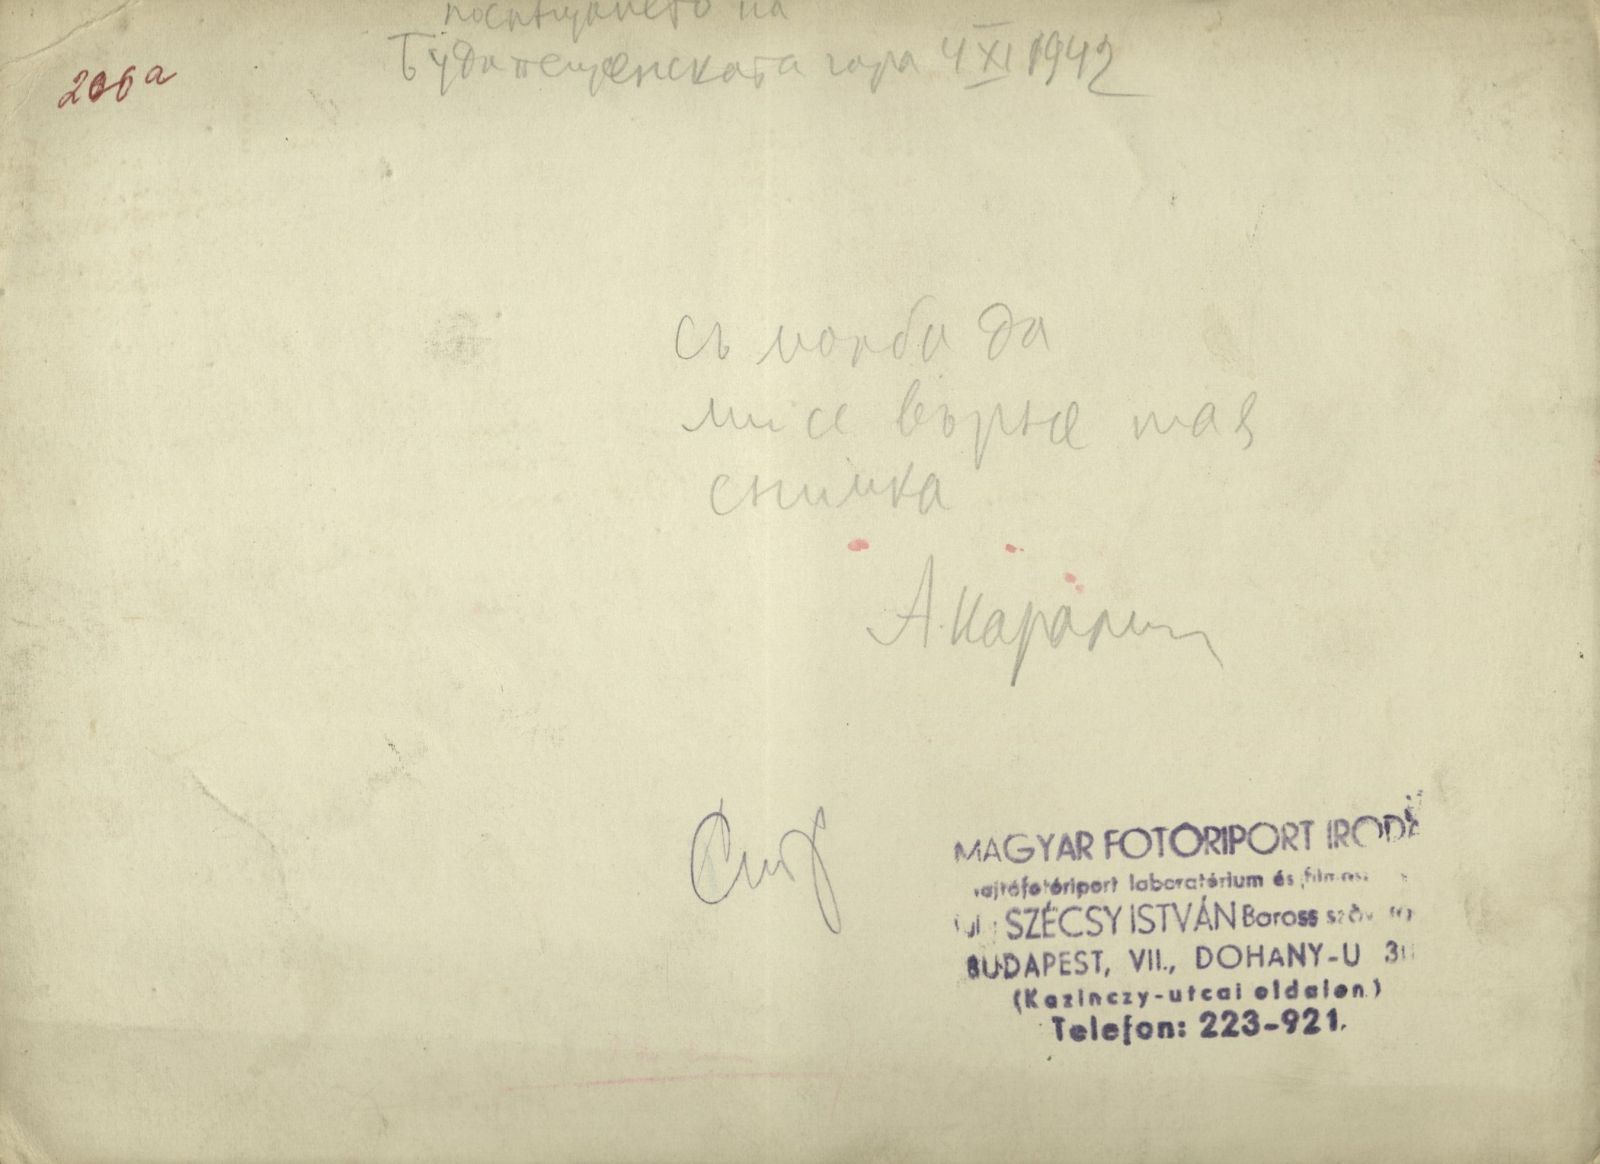 206а
посещението на
Будапещенската гара 4 XI 1942
съ молба да
ми се върне тая
снимка
MAGYAR FOTÓRIPORT IRODA
sajtófotóriport laboratórium és
SZÉCSY ISTVÁN Boross
BUDAPEST, VII., DOHANY-U
(Kazinczy-utcai oldalon)
Telefon: 223-921.